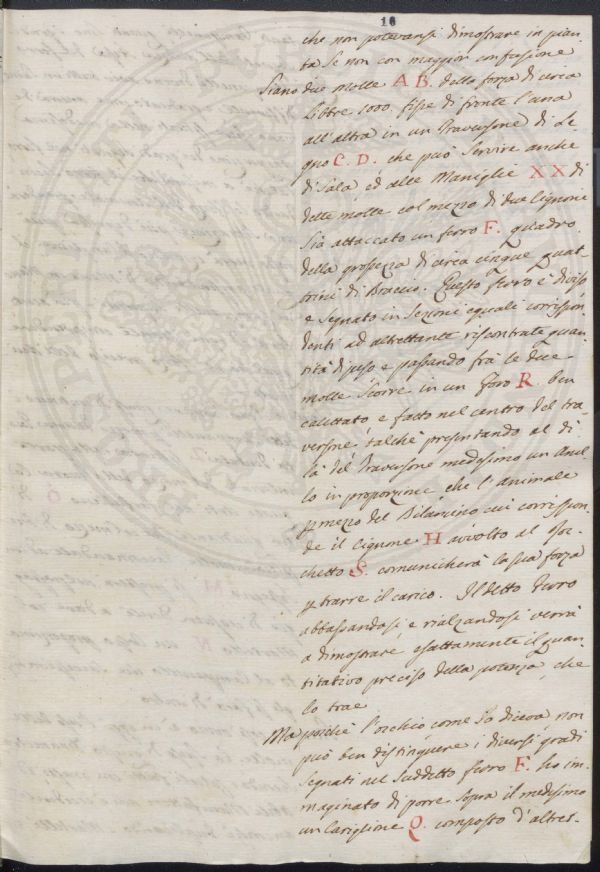 18
che non potevansi dimostrare in pian-
ta se non con maggior confusione
Siano due molle A B. della forza di circa
Libbre 1000. fisse di fronte l'una
all'altra in un Traversone di Le
gno C. D. che può servire anche
di sala ed alle Maniglie X X di
dette molle col mezzo di due Cignoni
sia attaccato un ferro F. quadro
della grossezza di circa cinque quat-
trini di Braccio. Questo ferro è diviso
e segnato in sezioni eguali corrispon-
denti ad altrettante riscontrate quan-
tità di peso e passando frà le due
molle scorre in un foro R. ben
calettato e fatto nel centro del tra
versone, talche presentando al di
là del Traversone medesimo un Anel
lo in proporzione che l'animale
p mezzo del Bilancino cui corrispon-
de il cignone H avvolto al Roc-
chetto S. comunicherà la sua forza
p trarre il carico. Il detto ferro
abbassandosi e rialzandosi verrà
a dimostrare esattamente il quan-
titativo preciso della potenza, che
lo trae
Ma poichè l'occhio come Io diceva non
può ben distinguere i diversi gradi
segnati nel suddetto ferro F. ho im-
maginato di porre sopra il medesimo
un Cariglione Q. composto d'altret-